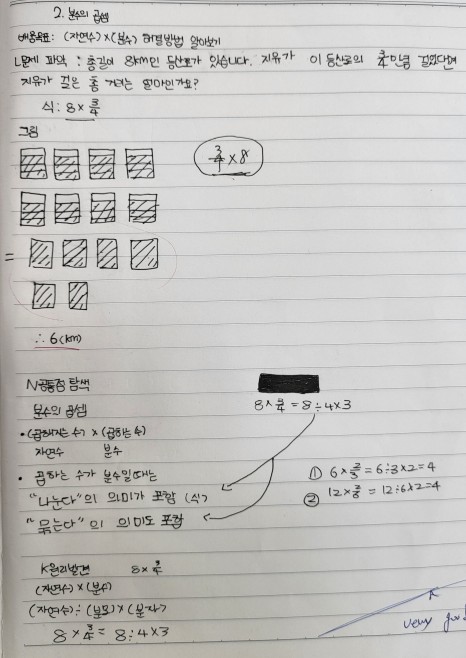 2. 분수의 곱셈
배움목표: (자연수)×(분수) 해결방법 알아보기
L문제 파악 : 총길이 8km인 등산로가 있습니다. 지유가 이 등산로의 3/4만큼 걸었다면
지유가 걸은 총 거리는 얼마인가요?
식: 8×3/4
그림
3/4×8
=
∴ 6(km)
N공통점 탐색
분수의 곱셈
8×3/4=8÷4×3
•(곱해지는 수)×(곱하는 수)
자연수 분수
• 곱하는 수가 분수일때는
"나눈다"의 의미가 포함 (식)
"묶는다"의 의미도 포함
① 6×2/3=6÷3×2=4
② 12×2/6=12÷6×2=4
K원리발견 8×3/4
(자연수)×(분수)
(자연수)÷(분모)×(분자)
8×3/4=8÷4×3
very good